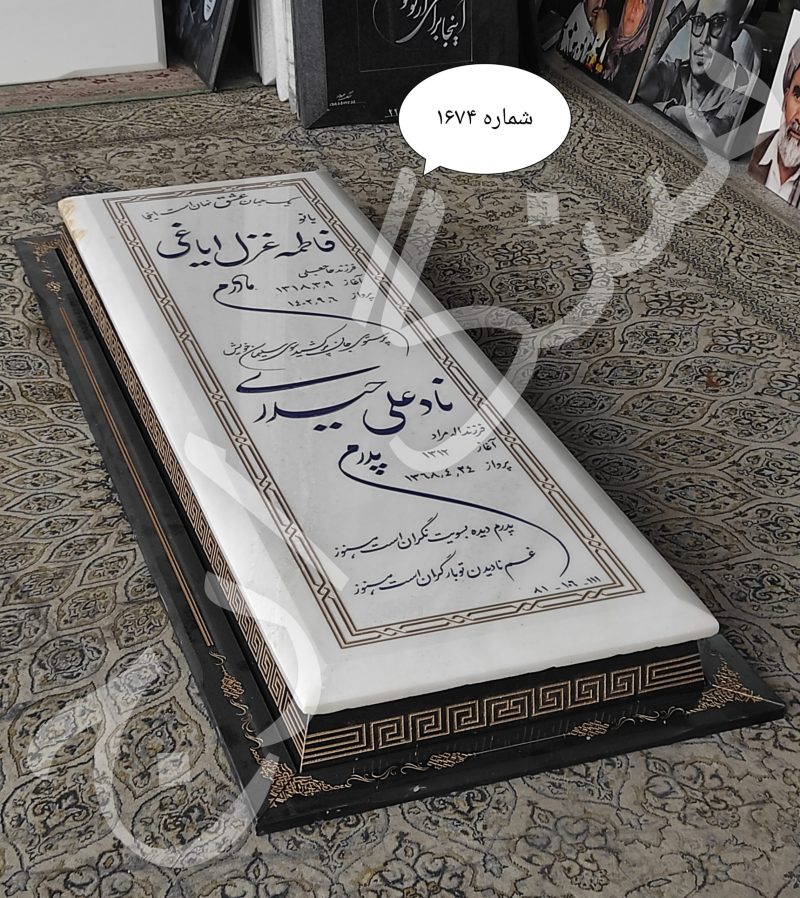 اینجا برای از تو
شماره ۱۶۷۴
یک جهان عشق نهان است اینجا
بانو
فاطمه غزل ایاغی
فرزند
آغاز ۱۳۱۸،۳،۹
پرواز ۱۴۰۳،۹،۶
مادرم
پرستوی
نادعلی حیدری
فرزند اله مراد
آغاز ۱۳۱۳
پرواز ۱۳۶۸،۴،۲۴
پدرم
پدرم دیده بسویت نگران است هنوز
غم نادیدن تو بار گران است هنوز
۸۱ - ۱۶ - ۱۱۱